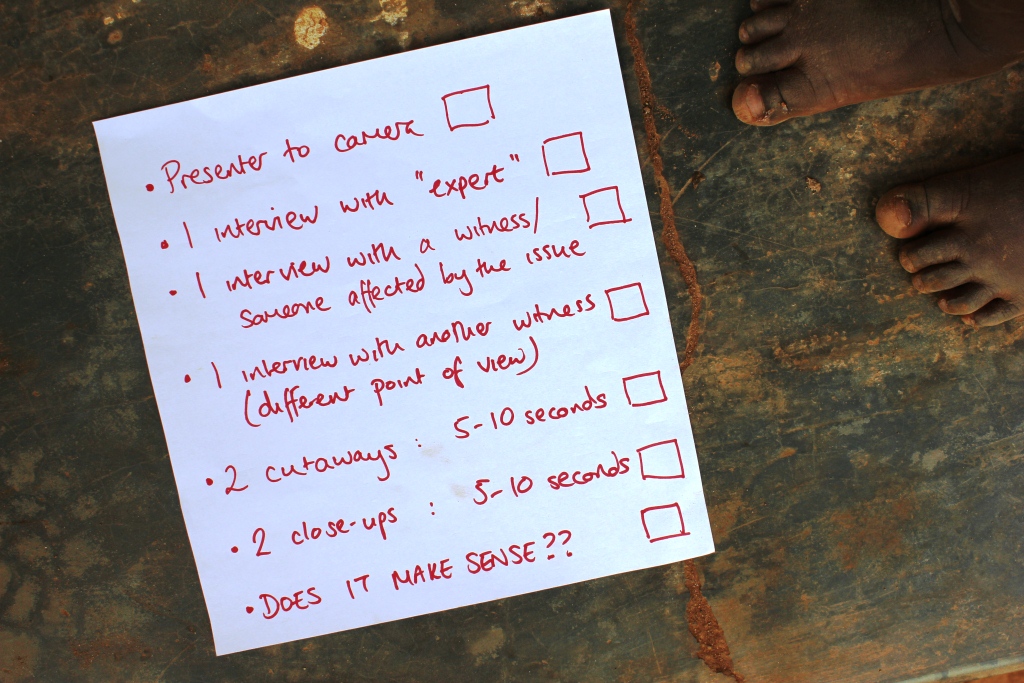 • Presenter to camera
• 1 interview with "expert"
• 1 interview with a witness/
someone affected by the issue
• 1 interview with another witness
(different point of view)
• 2 cutaways : 5-10 seconds
• 2 close-ups : 5-10 seconds
• DOES IT MAKE SENSE??